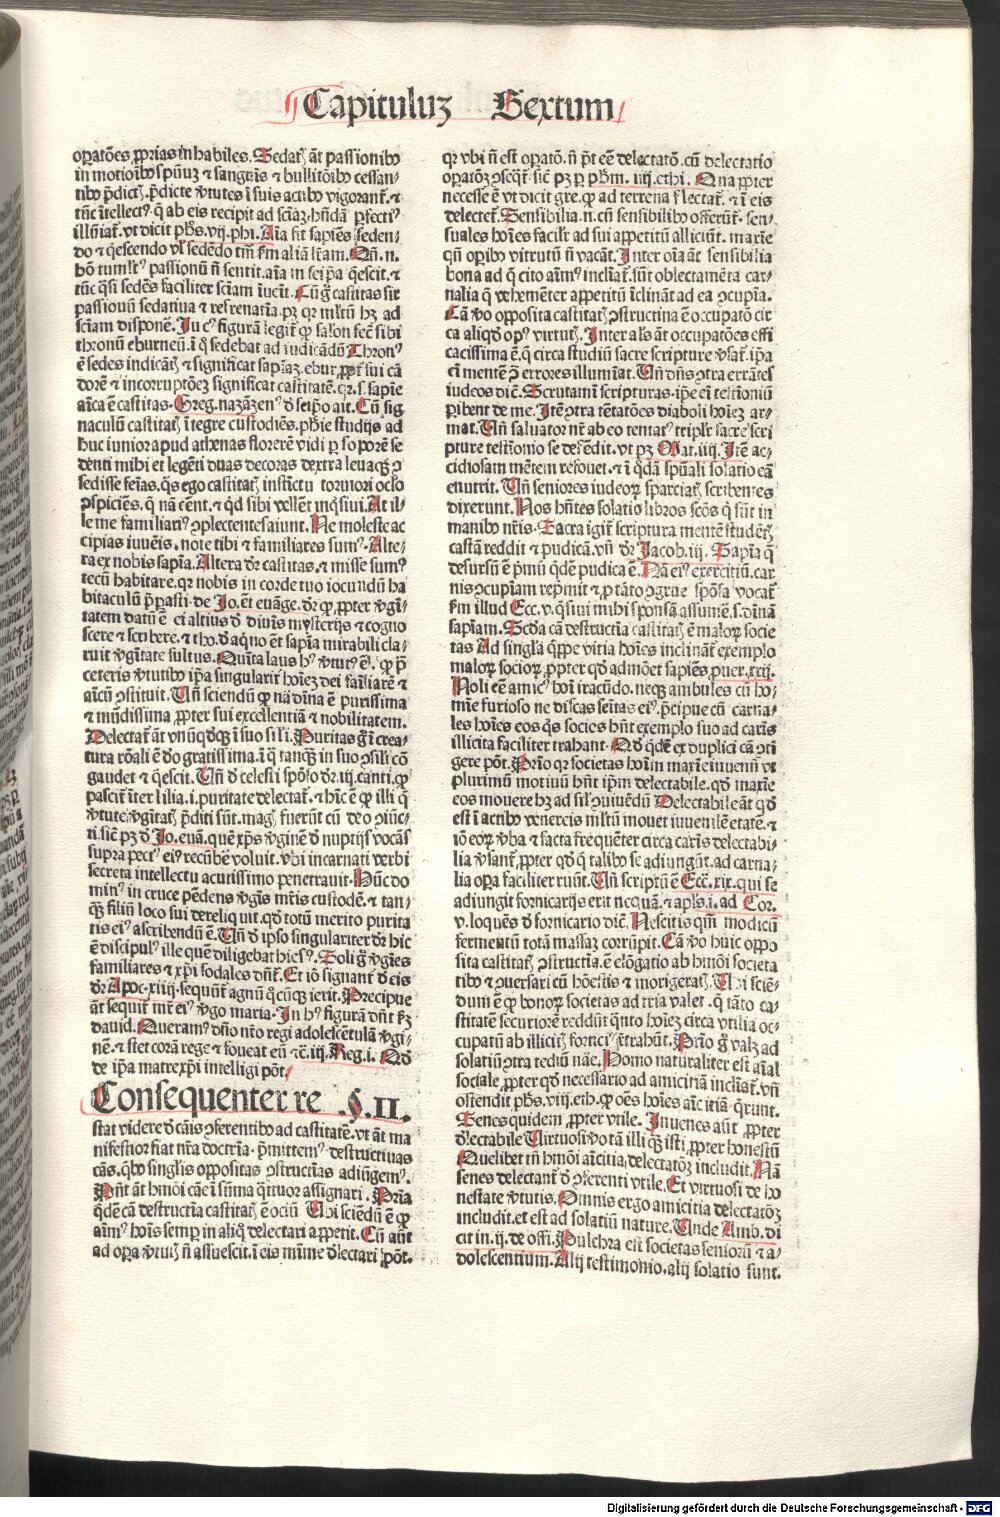 Capituluz Sextum
oꝑatões ꝓprias inhabiles. Sedatꝭ at̄ passionibꝰ
in motioibꝰ spūuʒ ⁊ sangnīs ⁊ bullitōibꝰ cessan-
tibꝰ p̄dictꝭ. p̄dicte v̓tutes ī suis actibꝰ vigorant̄. ⁊
illūiat̄. vt dicit ph̓s. vij. phi. Aīa fit sapiēs seden-
do ⁊ q̄escendo vl̓ sedēdo
bō tumltꝰ passionū n̄ sentit. aīa in seip̄a q̄escit. ⁊
tūc q̄si sedēs faciliter sciam
passiouū sedatiua ⁊ refrenatīa.
sciam disponē.
thronū eburneū. ī q̄ sedebat ad iudicādū Thronꝰ
ē sedes indicātꝭ ⁊ significat
dorē ⁊ incorruptōeʒ significat castitatē.
aīca ē castitas. Greg. nazāzenꝰ d̓ seip̄o ait. Cū sig
naculū castitatꝭ ītegre custodiēs. ph̓ie studijs ad
huc iunior apud athenas florerē vidi ꝑ soporē se
denti mihi et legēti duas decoras dextra leuaqꝫ ꝯ
sedisse feīas. q̄s ego castitatꝭ instīctu toruiori oclo
ꝯspiciēs. q̄ nā cent. ⁊ q̄d sibi vellēt inq̄siui. At il-
le me familiariꝰ ꝯplectentes aiunt. Ne moleste ac
cipias iuuēis. note tibi ⁊ familiares sumꝰ. Alte-
ra ex nobis sapīa. Altera dr̄ castitas. ⁊ misse sumꝰ
tecū habitare. qr nobis in corde tuo iocundū ha
bitaculū p̄parasti. de Jo. et̄ euāge. dr̄ ꝙ ꝓpter v̓gī-
tatem datū ē ei altius d̓ diuīs mysterijs ⁊ cogno
scere ⁊ scribere. ⁊ tho. d̓ aqno et̄ sapīa mirabili cla-
ruit v̓gītate fultus. Quīta laus
ceteris v̓tutibꝰ ip̄a singularit̓ hoīeʒ dei failiarē ⁊
aīcū ꝯstituit. Uñ sciendū ꝙ nā dīna ē purissima
⁊ mūdissima ꝓpter sui excellentiā ⁊ nobilitatem.
Delectat̄ at̄ vnūq̄dqꝫ ī suo sīli. Puritas g̓ ī crea-
tura rōali ē deo gratissima. ī q̄ tanqꝫ in suo ꝯsīli cō
gaudet ⁊ q̄escit. Uñ d̓ celesti spōso dr̄. ij. canti. ꝙ
pascit̄ īter lilia. i. puritate delectat̄. ⁊ hīc ē ꝙ illi q̄
v̓tute v̓gītatꝭ p̄diti sūt. magꝭ fuerūt cū deo ꝯiūc-
ti. sic̄ pʒ d̓ Jo. euā. quē xp̄s v̓ginē d̓ nuptijs vocās
supra pectꝰ eiꝰ recūbē voluit. vbi incarnati verbi
secreta intellectu acutissimo penetrauit. Hūc do
minꝰ in cruce pēdens v̓gīs mr̄is custodē. ⁊ tan-
qꝫ filiū loco sui dereliquit. qd̓ totū merito purita
tis eiꝰ ascribendū ē. Uñ d̓ ipso singulariter dr̄ hic
ē discipulꝰ ille quē diligebat hiesꝰ. Soli g̓ v̓gīes
familiares ⁊ xp̄i sodales dn̄t̄. Et iō signant̓ d̓ eis
dr̄ Apoc. xiiij. sequūt̄ agnū q̄cūqꝫ ierit. Precipue
at̄ sequit̄ mr̄ eiꝰ v̓go maria. In hꝰ figurā dn̄t̄ fꝫ
dauid. Queramꝰ dn̄o nr̄o regi adolescētulā v̓gi-
nē. ⁊ stet corā rege ⁊ foueat eū ⁊c̄. iij. Reg. i. Qd̓
de ip̄a matre xp̄i intelligi pōt.
Consequenter re .§. II.
stat videre d̓ cāis ꝯferentibꝰ ad castitatē. vt at̄ ma
nifestior fiat nr̄a doctrīa. p̄mittemꝰ destructiuas
cās. qbꝰ singlīs oppositas ꝯstructīas adiūgemꝰ.
Pn̄t at̄ hmōi cāe ī sūma q̄tuor assignari. Prīa
q̄dē cā destructīa castitatꝭ ē ociū Ubi sciēdū ē ꝙ
aīmꝰ hoīs semꝑ in aliq̄ delectari appetit. Cū aūt
ad oꝑa v̓tutꝭ n̄ assuescit. ī eis mīme d̓lectari pōt.
qr vbi n̄ est oꝑatō. n̄ pt̄ eē delectatō. cū delectatio
oꝑatōʒ ꝯseqt̄. sic̄ pʒ ꝑ ph̓m. iiij. ethi. Qua ꝓpter
necesse ē vt dicit gre. ꝙ ad terrena flectat̄. ⁊ ī eis
delectet̄. Sensibilia. n. cū sensibilibꝰ offerūt̄. sen-
suales hoīes facilr̄ ad sui appetitū alliciūt. maxīe
qn̄ oꝑibꝰ virtutū n̄ vacāt. Inter oīa at̄ sensibilia
bona ad q̄ cito aīmꝰ inclīat̄. sūt oblectamēta car-
nalia q̄ vehemēter appetitū īclināt ad ea ꝯcupīa.
Cā v̓o opposita castitatꝭ ꝯstructina ē occupatō cir
ca aliqd̓ opꝰ virtutꝭ. Inter als̄ at̄ occupatōes effi
cacissima ē. q̄ circa studiū sacre scripture v̓sat̄. ip̄a
eī mentē ꝯ errores illumīat. Uñ dn̄s ꝯtra errātes
iudeos dic̄. Scrutamī scripturas. ip̄e eī testīoniū
ꝑibent de me. Itē ꝯtra tētatōes diaboli hoīeʒ ar-
mat. Uñ saluator nr̄ ab eo tentatꝰ triplr̄ sacre scri
pture testīonio se defēdit. vt pʒ Mat. iiij. Itē ac-
cidiosam mētem refouet. ⁊ ī q̄dā spūali solatio eā
enutrit. Uñ seniores iudeoꝝ sparciatꝭ scribentes
dixerunt. Nos hn̄tes solatio libros scōs q̄ sūt in
manibꝰ nr̄is. Sacra igit̄ scriptura mentē studētꝭ
castā reddit ⁊ pudicā. vñ dr̄ Jacob. iij. Sapīa q̄
desursū ē p̄mū q̄dē pudica ē. Nā eiꝰ exercitiū. car
nis ꝯcupīam rep̄mit ⁊ ꝓ tāto ꝯgrue spōsa vocat̄
fm illud Ecc. v. q̄siui mihi sponsā assumē. s. dīnā
sapīam. Scd̓a cā destructīa castitatꝭ ē maloꝝ socie
tas Ad singl̓a q̄ppe vitia hoīes inclināt̄ exemplo
maloꝝ socioꝝ. ꝓpter qd̓ admōet sapiēs ꝓuer. xxij.
Noli eē amicꝰ hoī iracūdo. neqꝫ ambules cū ho-
mīe furioso ne discas seītas eiꝰ. p̄cipue cū carna-
les hoīes eos q̄s socios hn̄t exemplo suo ad carīs
illicita faciliter trahant. Qd̓ q̄dē ex duplici cā ꝯtī
gere pōt. Prīo qr societas hoīm maxīe iuuenū vt
plurimū motiuū hn̄t ip̄m delectabile. qd̓ maxīe
eos mouere hʒ ad sīl ꝯuiuēdū Delectabile at̄ qd̓
est ī actibꝰ venereis mltū mouet iuuenilē etatē. ⁊
iō eoꝝ v̓ba ⁊ facta frequēter circa carīs delectabi-
lia v̓sant̄. ꝓpter qd̓ q̄ talibꝰ se adiungūt. ad carna-
lia oꝑa faciliter ruūt. Uñ scriptū ē Ecc. xix. qui se
adiungit fornicarijs erit neq̄uā. ⁊ apl̓s. i. ad Cor.
v. loquēs d̓ fornicario dic̄. Nescitis qm̄ modicū
fermentū totā massaʒ corrūpit. Cā v̓o huic oppo
sita castitatꝭ ꝯstructīa. ē elōgatio ab hmōi societa
tibꝰ ⁊ ꝯuersari cū hōestis ⁊ morigeratꝭ. Ubi sciē-
dum ē ꝙ bonoꝝ societas ad tria valet. q̄ tāto ca-
stitatē securiorē reddūt q̄nto hoīeʒ circa vtilia oc-
cupatū ab illicitꝭ forticꝰ retrahūt. Prīo g̓ valʒ ad
solatiū ꝯtra tediū nāe. Homo naturaliter est aīal
sociale. ꝓpter qd̓ necessario ad amicitiā inclīat̄. vñ
ostendit ph̓s. viij. eth. ꝙ oēs hoīes aīcitiā q̄runt.
Senes quidem ꝓpter vtile. Iuuenes aūt ꝓpter
d̓lectabile Uirtuosi v̓o tā illi qꝫ isti ꝓpter honestū
Quelibet tn̄ hmōi aīcitia. delectatōʒ includit. Nā
senes delectant̄ d̓ ꝯferenti vtile. Et virtuosi de ho
nestate v̓tutis. Omnis ergo amicitia delectatōʒ
includit. et est ad solatiū nature. Unde Amb. di
cit in. ij. de offi. Pulchra est societas senioꝝ ⁊ a-
dolescentium. Alij testimonio. alij solatio sunt.
Digitalisierung gefördert durch die Deutsche Forschungsgemeinschaft - DFG